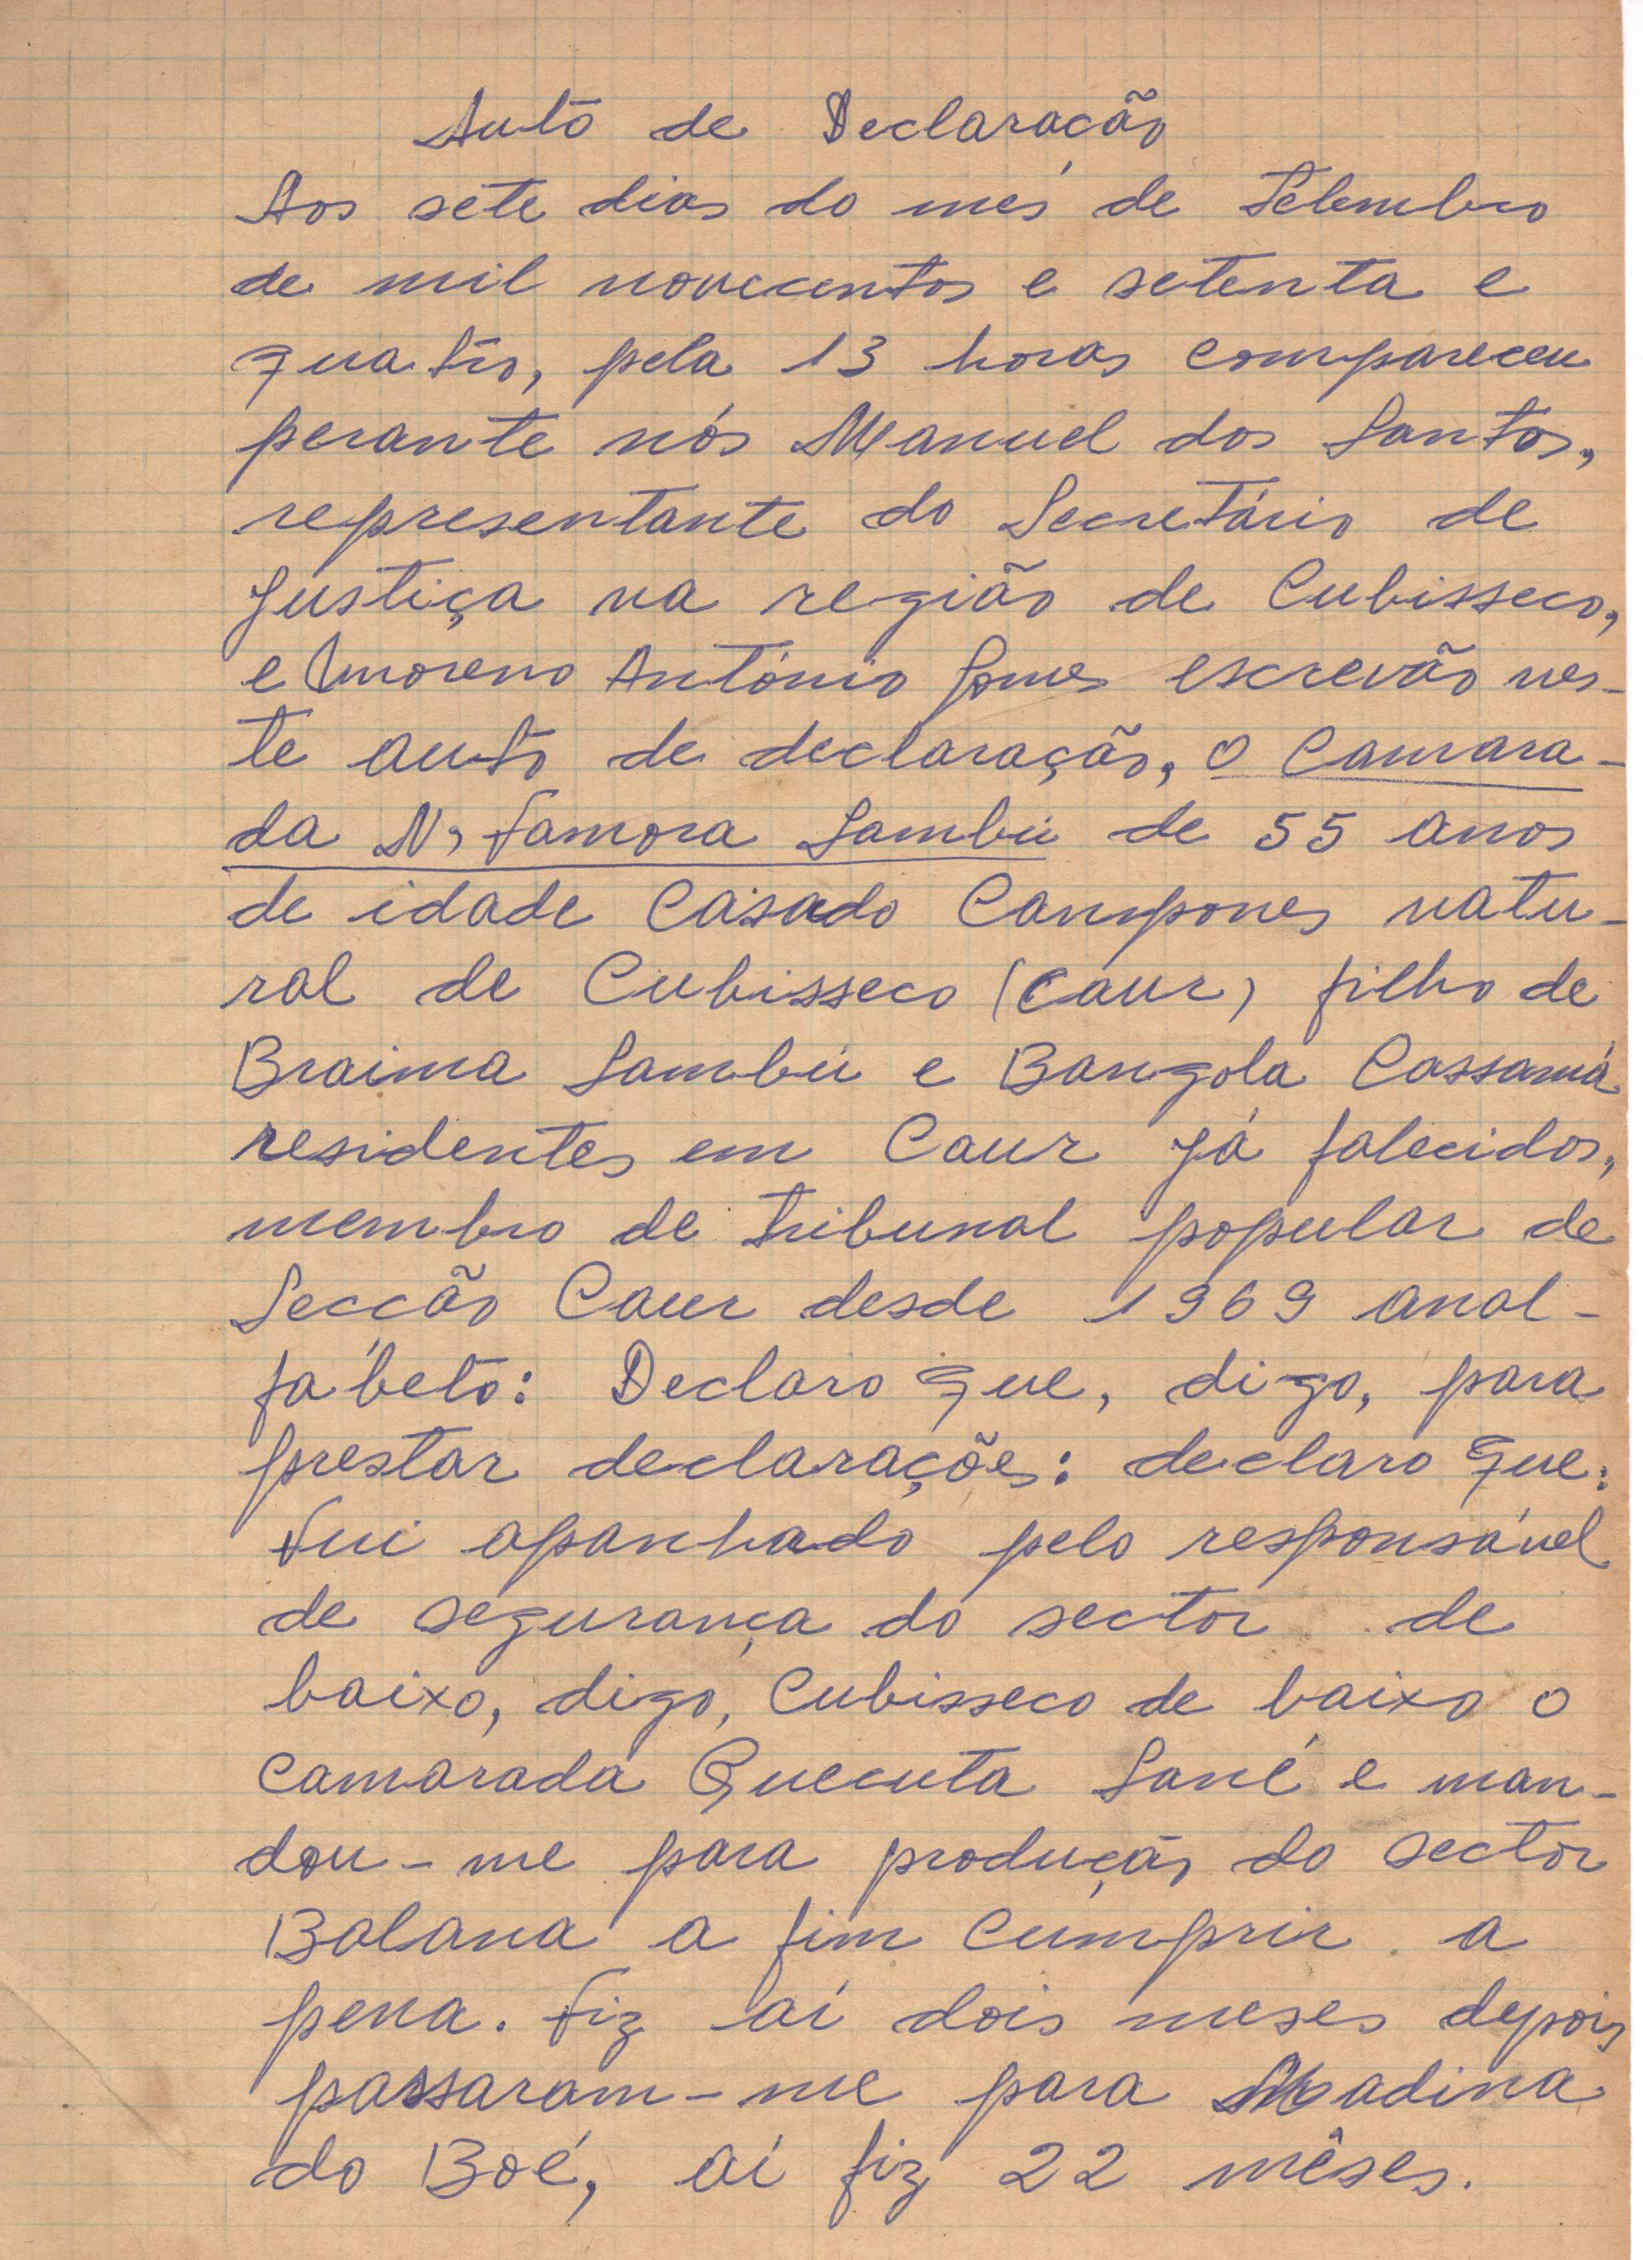 Auto de Declaracão
Aos sete dias do mês de Setembro
de mil novecentos e setenta e
quatro, pela 13 horas compareceu
perante nós Manuel dos Santos,
representante do Secretário de
Justiça na região de Cubisseco,
e Umoreno António Gomes escrevão nes-
te auto de declaração, o camara-
da N, Famora Sambú de 55 anos
de idade Casado Campones natu-
ral de Cubisseco (Caur) filho de
Braima Sambú e Bangola Cassamá
residentes em Caur já falecidos,
membro de tribunal popular de
Seccão Caur desde 1969 anal-
fabeto: Declaro que, digo, para
prestar declarações: declaro que:
Fui apanhado pelo responsável
de segurança do sector de
baixo, digo, Cubisseco de baixo o
Camarada Quecuta Sané e man-
dou-me para produção do sector
Balana a fim cumprir a
pena. Fiz aí dois meses depois
passaram-me para Madina
do Boé, aí fiz 22 mêses.